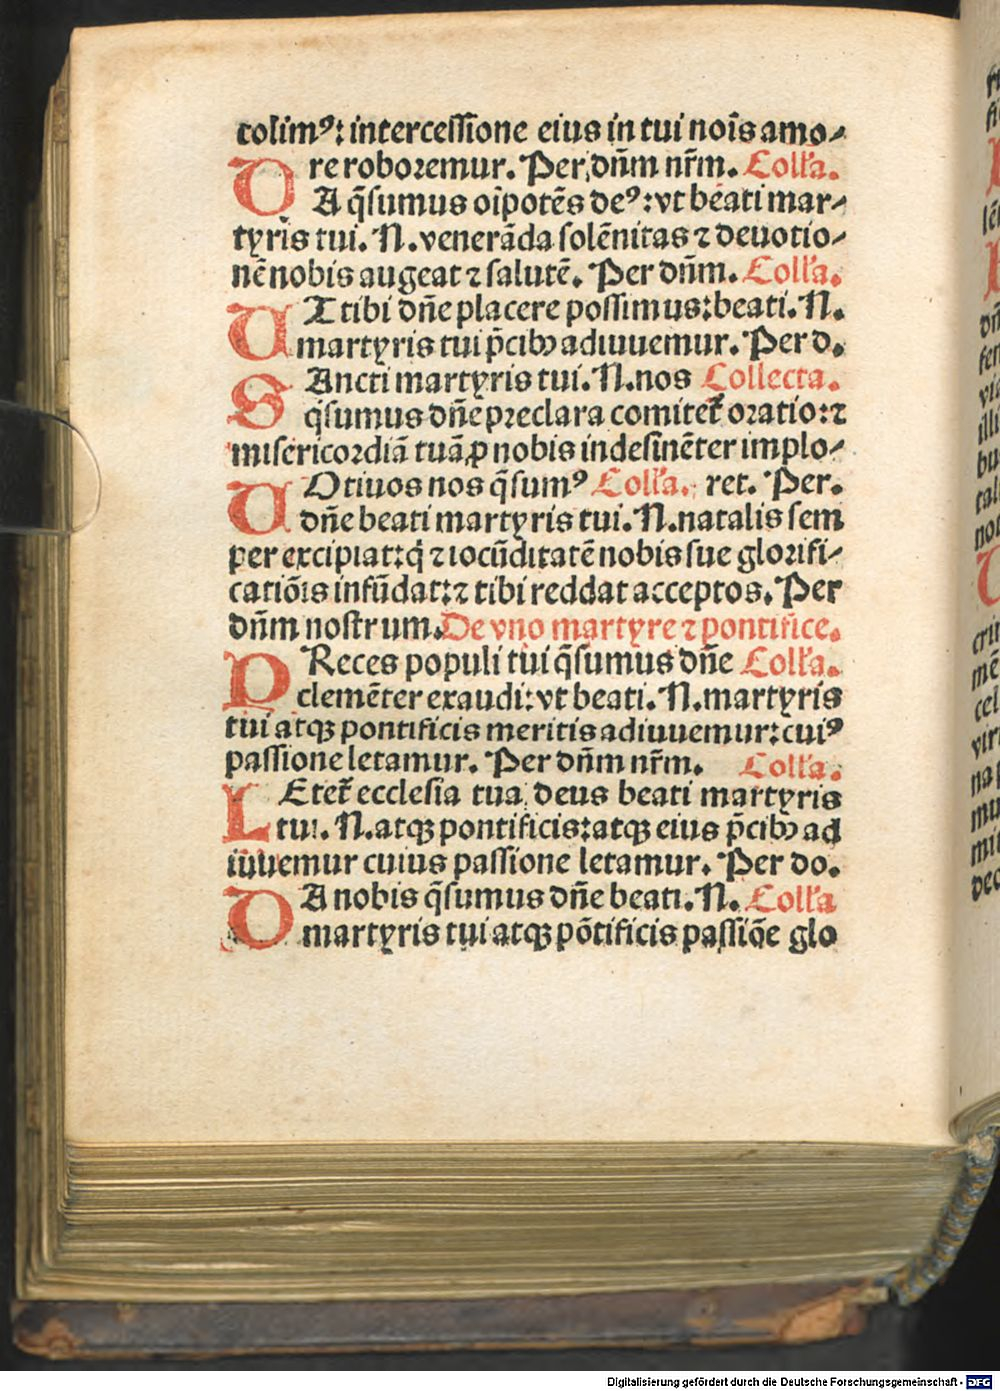 colimꝰ: intercessione eius in tui nōis amo⸗
re roboremur. Per dn̄m nr̄m. Coll'a.
DA q̄sumus oīpotēs deꝰ: vt beati mar⸗
tyris tui. N. venerāda solēnitas ⁊ deuotio⸗
nē nobis augeat ⁊ salutē. Per dn̄m. Coll'a.
UT tibi dn̄e placere possimus: beati. N.
martyris tui p̄cibꝫ adiuuemur. Per d.
SAncti martyris tui. N. nos Collecta.
q̄sumus dn̄e preclara comitet᷑ oratio: ⁊
misericordiā tuā ꝓ nobis indesinēter implo⸗
UOtiuos nos q̄sumꝰ Coll'a. ret. Per.
dn̄e beati martyris tui. N. natalis sem
per excipiat: q̇ ⁊ iocūditatē nobis sue glorifi⸗
catiōis infūdat: ⁊ tibi reddat acceptos. Per
dn̄m nostrum. De vno martyre ⁊ pontifice.
PReces populi tui q̄sumus dn̄e Coll'a.
clemēter exaudi: vt beati. N. martyris
tui atqꝫ pontificis meritis adiuuemur: cuiꝰ
passione letamur. Per dn̄m nr̄m. Coll'a.
LEtet᷑ ecclesia tua deus beati martyris
tui. N. atqꝫ pontificis: atqꝫ eius p̄cibꝫ ad
iuuemur cuius passione letamur. Per do.
DA nobis q̄sumus dn̄e beati. N. Coll'a
martyris tui atqꝫ pōtificis passiōe glo
Digitalisierung gefördert durch die Deutsche Forschungsgemeinschaft - DFG